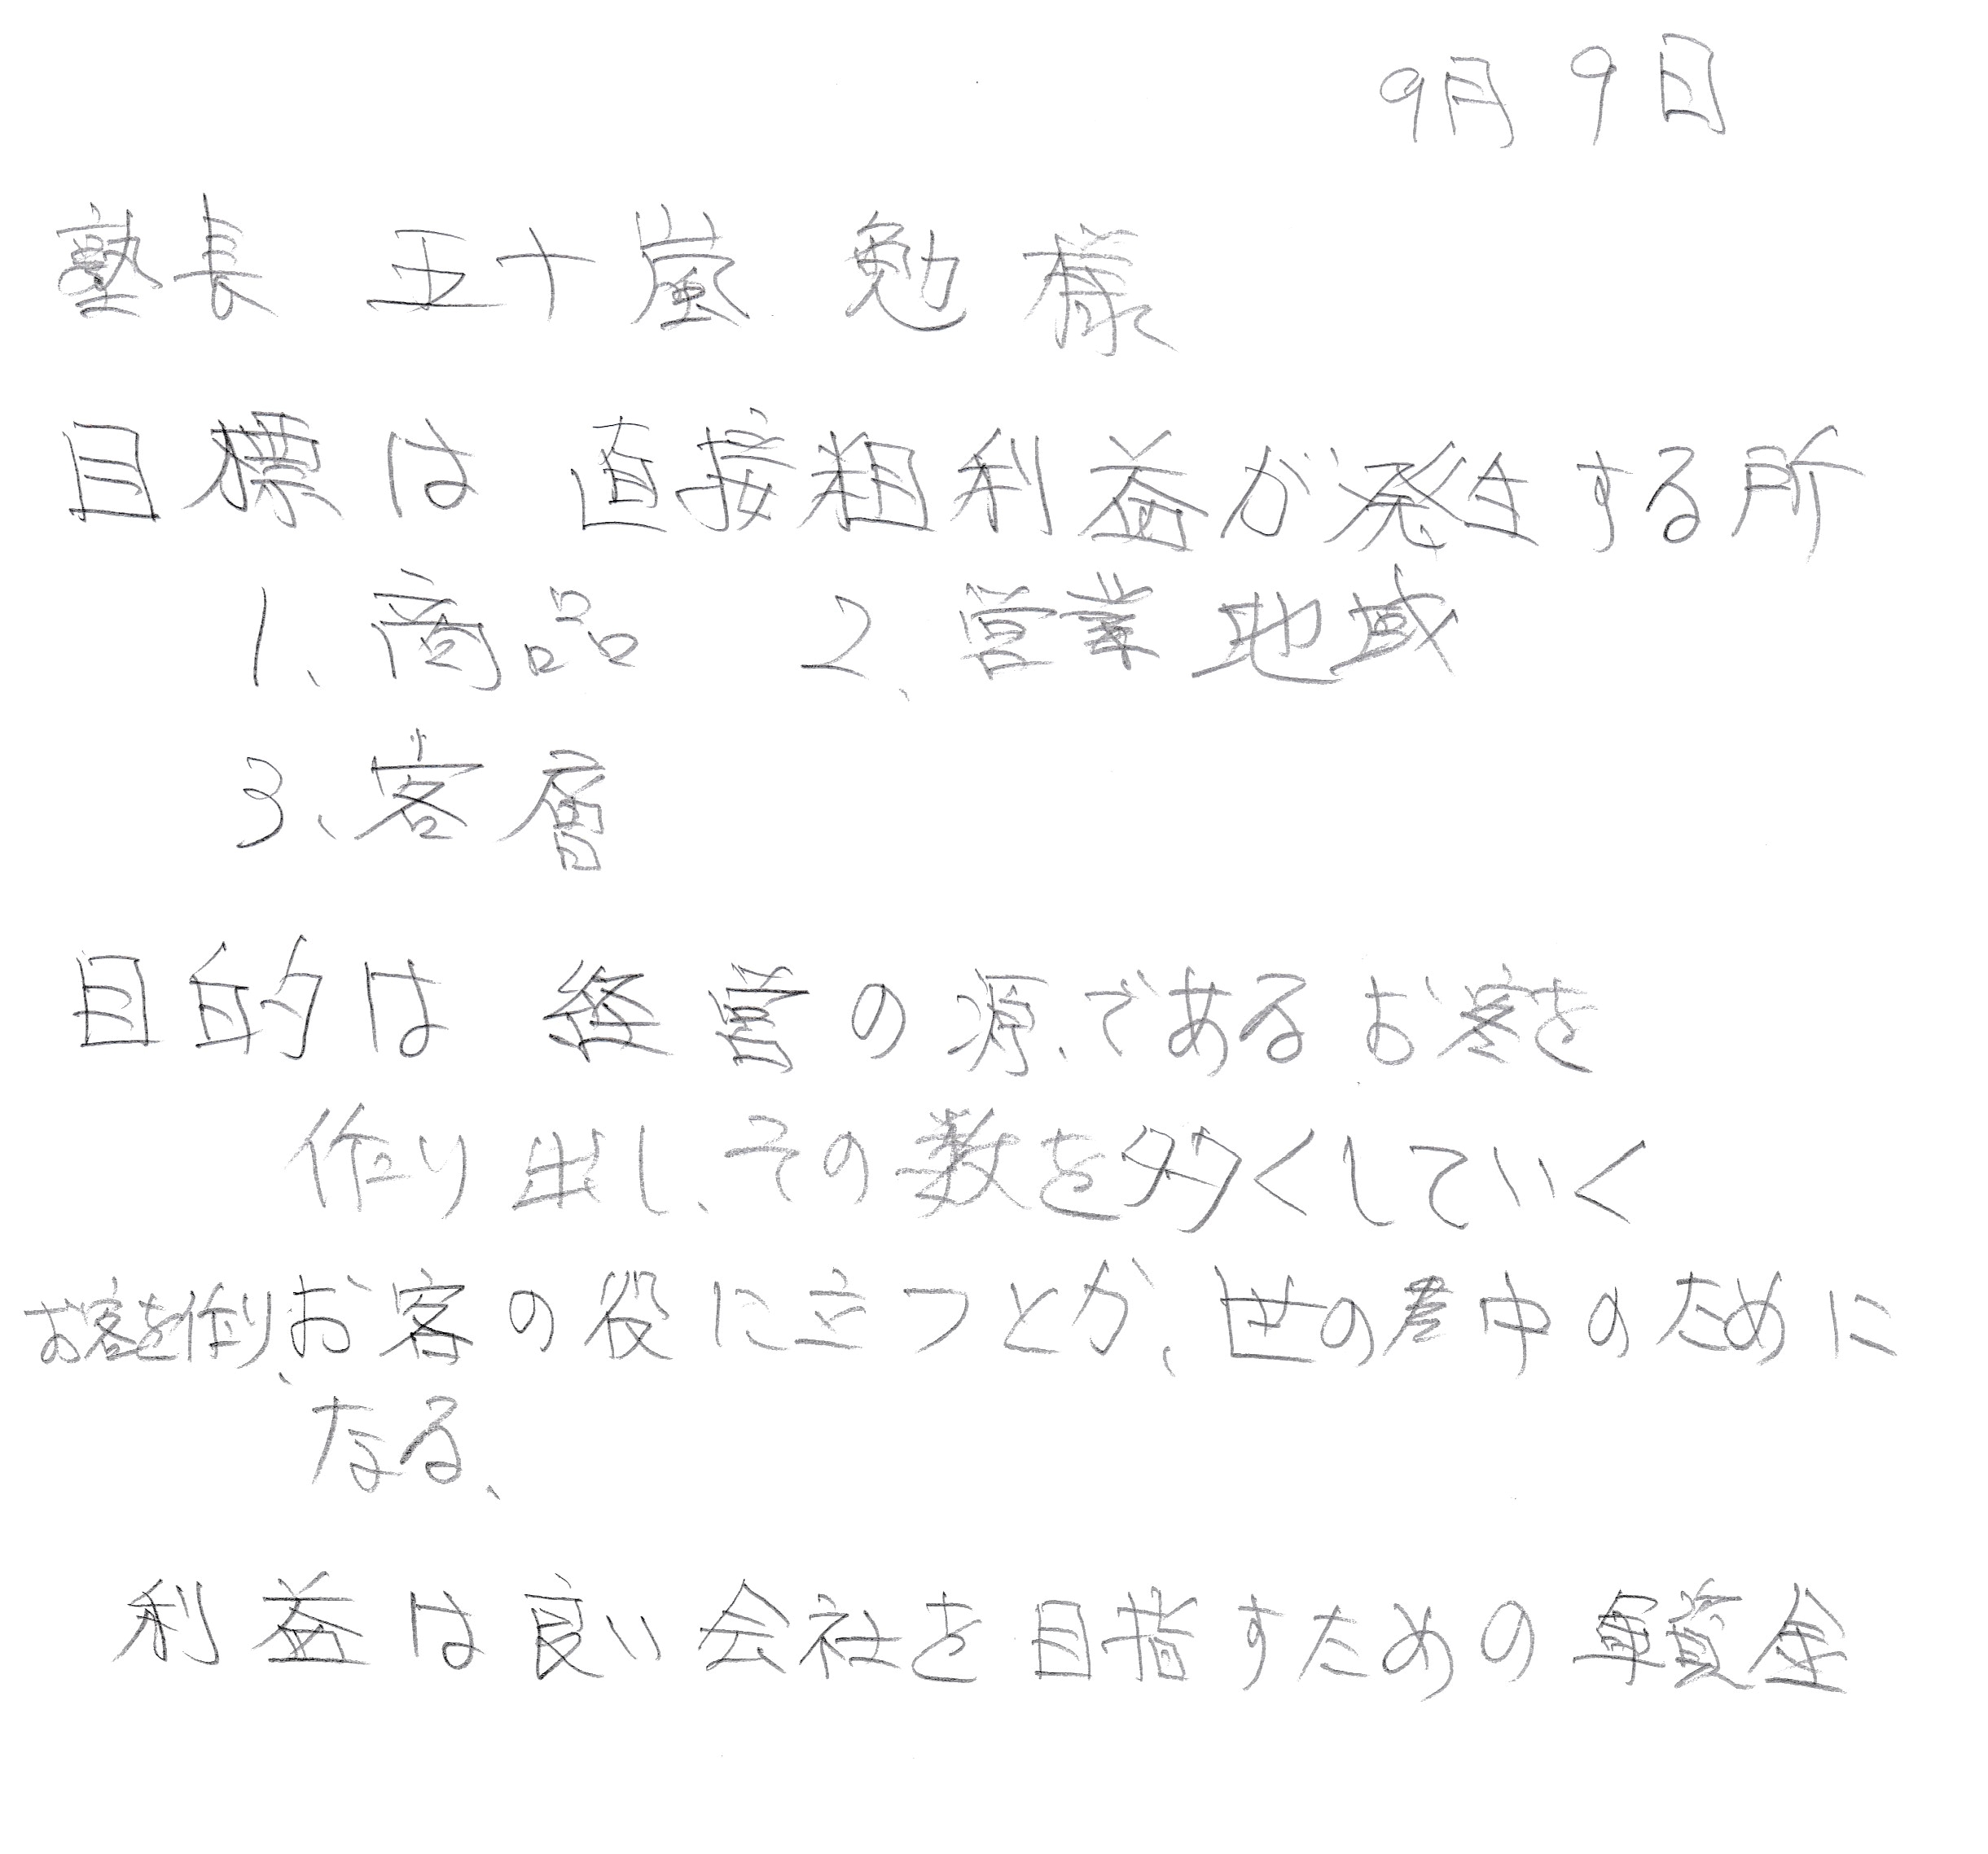 9月9日
塾長 五十嵐 勉 様
目標は 直接粗利益が発生する所
1、商品 2、営業地域
3、客層
目的は 経営の源、であるお客を
作り出し、その数を多くしていく
お客を作り、お客の役に立つとか、世の中のために
なる、
利益は良い会社を目指すための軍資金